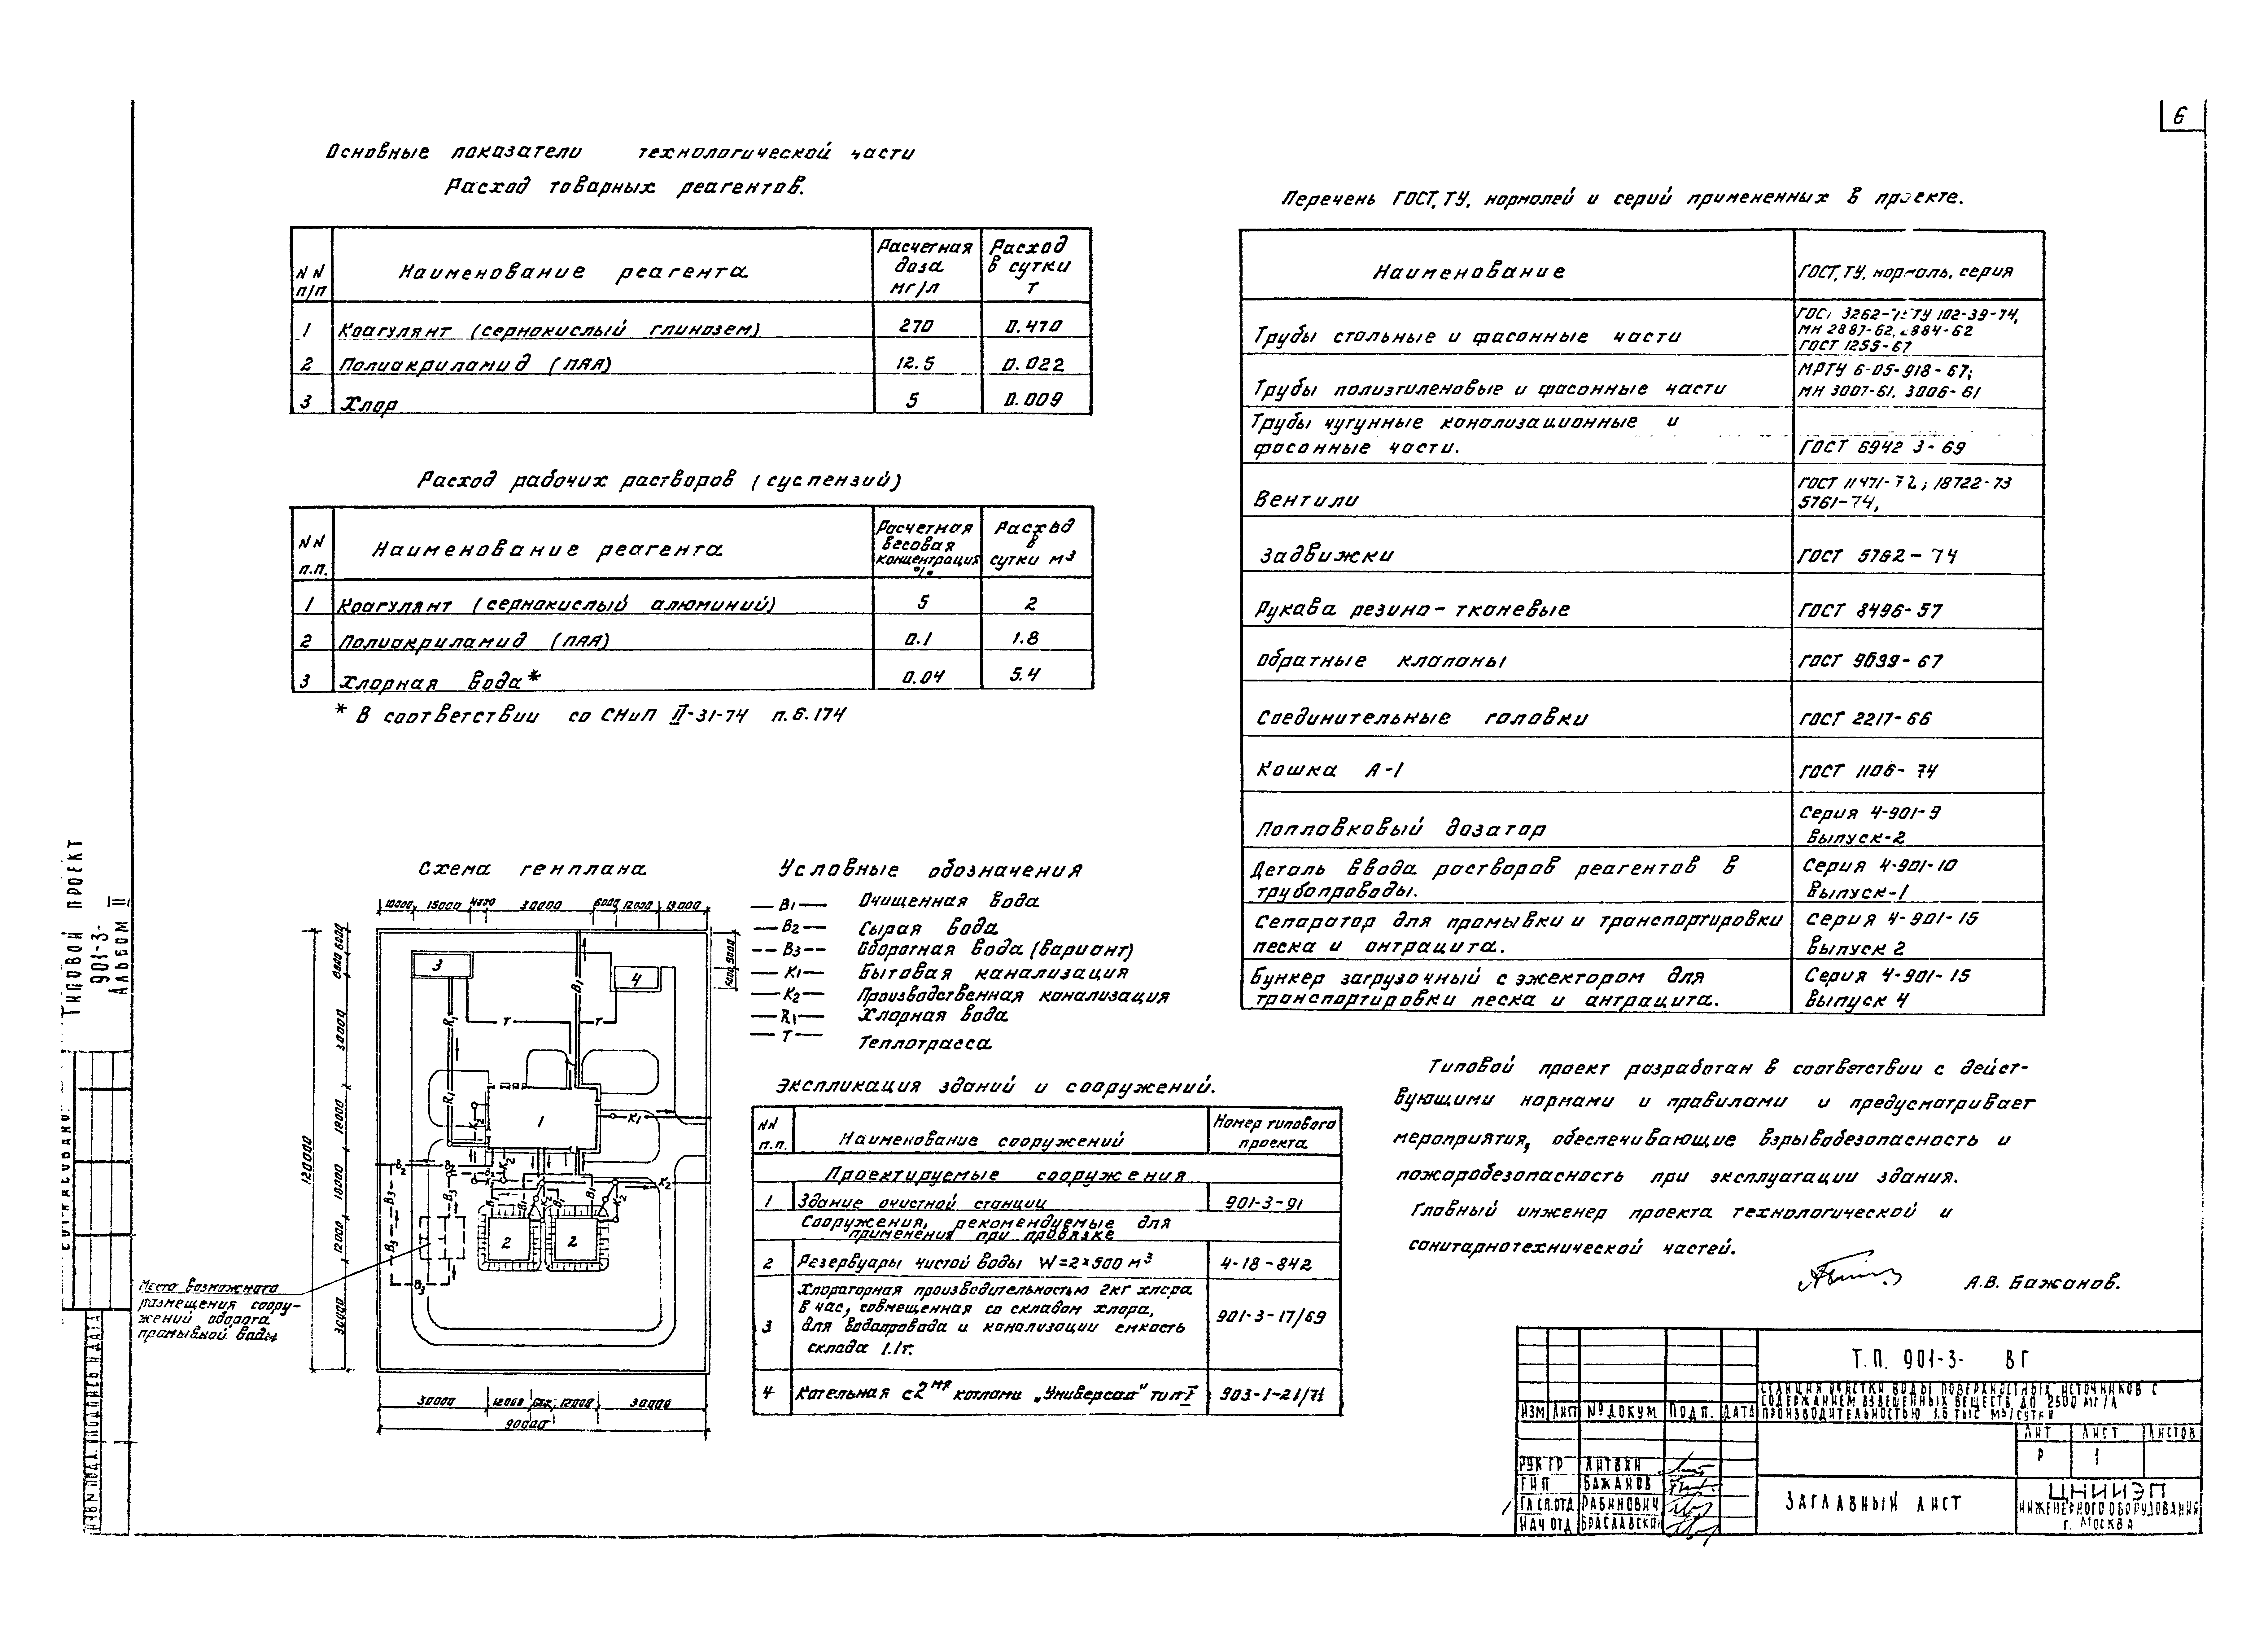 6
Основные показатели технологической части
Расход товарных реагентов.
NN п/п Наименование реагента Расчетная доза мг/л Расход в сутки т
1 Коагулянт (сернокислый глинозем) 270 0.470
2 Полиакриламид (ПАА) 12.5 0.022
3 Хлор 5 0.009
Расход рабочих растворов (суспензий)
NN п.п. Наименование реагента Расчетная весовая концентрация % Расход в сутки м³
1 Коагулянт (сернокислый алюминий) 5 2
2 Полиакриламид (ПАА) 0.1 1.8
3 Хлорная вода* 0.04 5.4
* В соответствии со СНиП II-31-74 п.6.174
Перечень ГОСТ, ТУ, нормалей и серий примененных в проекте.
Наименование ГОСТ, ТУ, нормаль, серия
Трубы стальные и фасонные части
ТУ 102-39-74,
МН 2887-62, 2884-62
ГОСТ 1255-67
Трубы полиэтиленовые и фасонные части
МРТУ 6-05-918-67;
МН 3007-61, 3006-61
Трубы чугунные канализационные и
фасонные части. ГОСТ 6942 3-69
Вентили
ГОСТ 11471-72; 18722-73
5761-74,
Задвижки ГОСТ 5762-74
Рукава резино-тканевые ГОСТ 8496-57
Обратные клапаны ГОСТ 9639-67
Соединительные головки ГОСТ 2217-66
Кошка А-1 ГОСТ 1106-74
Поплавковый дозатор
Серия 4-901-9
Выпуск-2
Деталь ввода растворов реагентов в Серия 4-901-10
трубопроводы. Выпуск-1
Сепаратор для промывки и транспортировки Серия 4-901-15
песка и антрацита. Выпуск 2
Бункер загрузочный с эжектором для Серия 4-901-15
транспортировки песка и антрацита. Выпуск 4
Схема генплана
10000 15000 4000 30000 6000 12000 13000
6000
30000
18000
18000
12000
30000
120000
9000
3
4
1
2
2
R1
R1
T
T
B1
K1
K2
K2
K2
B2
B3
B3
B3
B1
B1
30000 12000 12000 30000
90000
Места возможного
размещения соору-
жений оборота
промывной воды
Условные обозначения
В1 Очищенная вода
В2 Сырая вода
В3 Оборотная вода (вариант)
К1 Бытовая канализация
К2 Производственная канализация
R1 Хлорная вода
Т Теплотрасса
Экспликация зданий и сооружений.
NN п.п. Наименование сооружений Номер типового проекта
Проектируемые сооружения
1 Здание очистной станции 901-3-91
Сооружения, рекомендуемые для
применения при привязке
2 Резервуары чистой воды W=2×500 м³ 4-18-842
3 Хлораторная производительностью 2кг хлора
в час, совмещенная со складом хлора, 901-3-17/69
для водопровода и канализации емкость
склада 1.1т.
4 Котельная с 2мя котлами „Универсал" тип 903-1-21/71
Типовой проект разработан в соответствии с дейст-
вующими нормами и правилами и предусматривает
мероприятия, обеспечивающие взрывобезопасность и
пожаробезопасность при эксплуатации здания.
Главный инженер проекта технологической и
санитарнотехнической частей.
А.В. Бажанов.
Т.П. 901-3- ВГ
СТАНЦИЯ ОЧИСТКИ ВОДЫ ПОВЕРХНОСТНЫХ ИСТОЧНИКОВ С
СОДЕРЖАНИЕМ ВЗВЕШЕННЫХ ВЕЩЕСТВ ДО 2500 МГ/Л
ПРОИЗВОДИТЕЛЬНОСТЬЮ 1.6 ТЫС М³/СУТКИ
ИЗМ ЛИСТ № ДОКУМ ПОДП. ДАТА
ЛИТ ЛИСТ ЛИСТОВ
Р 1
РУК ГР ЛИТВИН
ГИП БАЖАНОВ
ГЛ СП.ОТД РАБИНОВИЧ
НАЧ ОТД БРАСЛАВСКИЙ
ЗАГЛАВНЫЙ ЛИСТ
ЦНИИЭП
ИНЖЕНЕРНОГО ОБОРУДОВАНИЯ
Г. МОСКВА
ТИПОВОЙ ПРОЕКТ
901-3-
АЛЬБОМ II
СОГЛАСОВАНО:
ИНВ№ ПОДЛ. ПОДПИСЬ И ДАТА